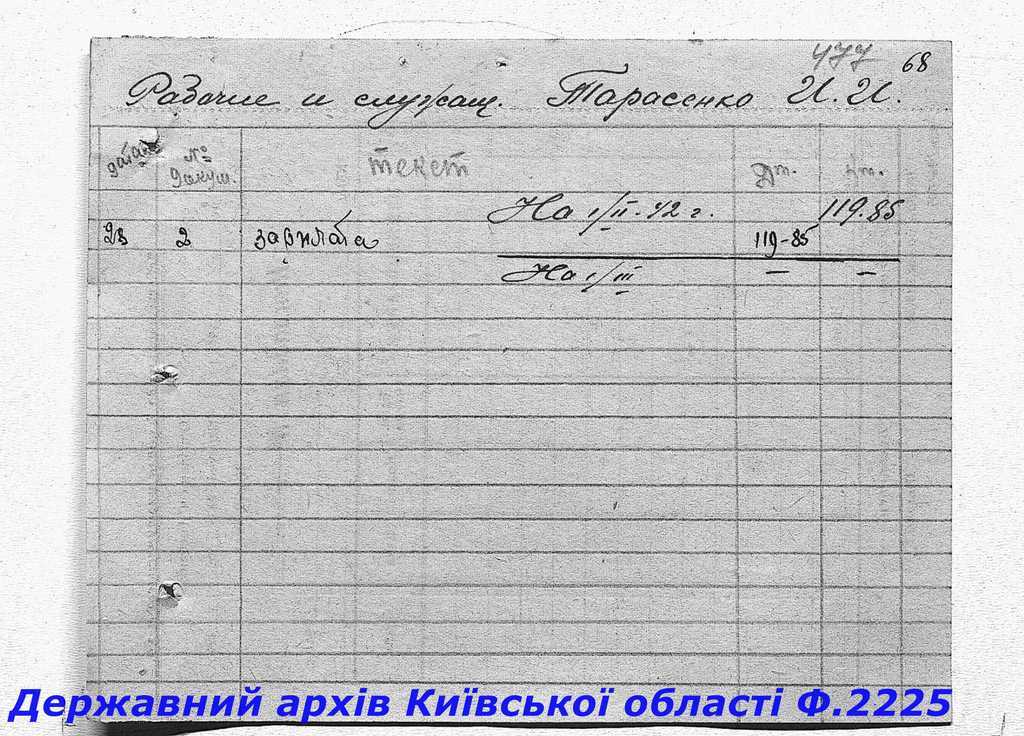 477 68
Рабочие и служащ. Тарасенко И. И.
дата № докум. текст Дт. Кт.
На 1/II-42 г. 119.85
28 2 зарплата 119-85
На 1/III — —
Державний архів Київської області Ф.2225